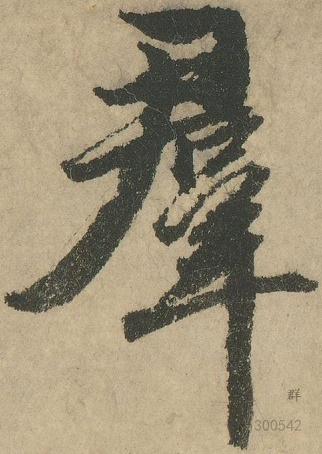 羣
群
300542